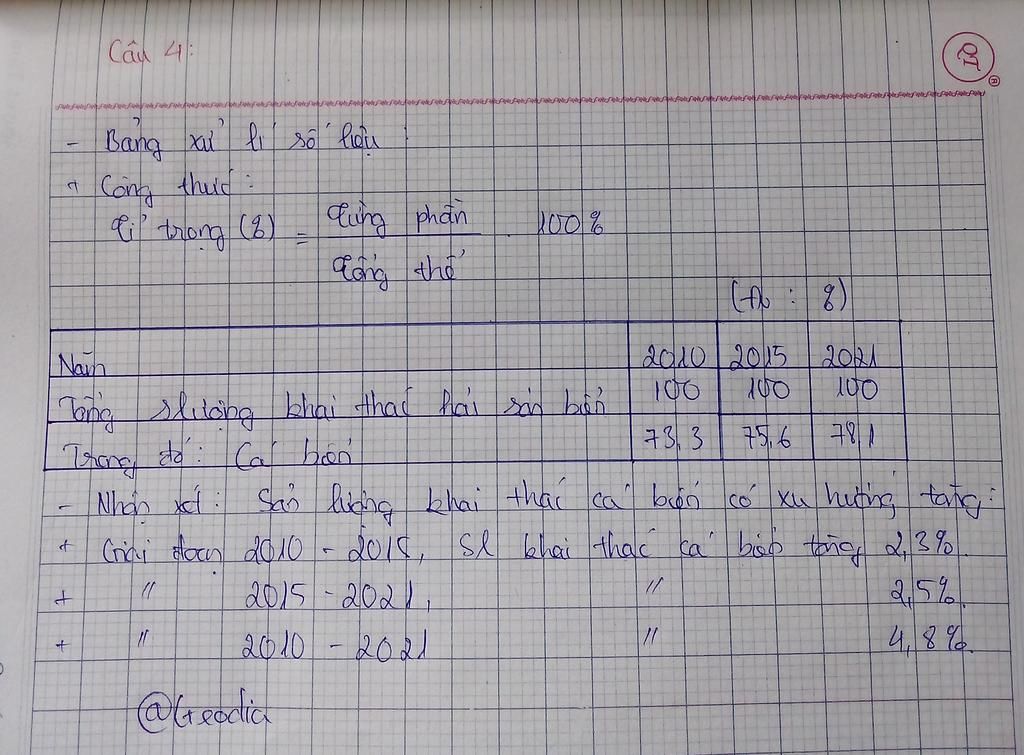 Câu 4:
- Bảng xử lí số liệu:
+ Công thức:
Tỉ trọng (%) = Từng phần / Tổng thể . 100%
(Đv : %)
Năm 2010 2015 2021
Tổng slượng khai thác hải sản biển 100 100 100
Trong đó: Cá biển 73,3 75,6 78,1
- Nhận xét: Sản lượng khai thác cá biển có xu hướng tăng:
+ Giai đoạn 2010 - 2015, SL khai thác cá biển tăng 2,3%
+ " 2015 - 2021, " 2,5%.
+ " 2010 - 2021 " 4,8%.
@Geodia